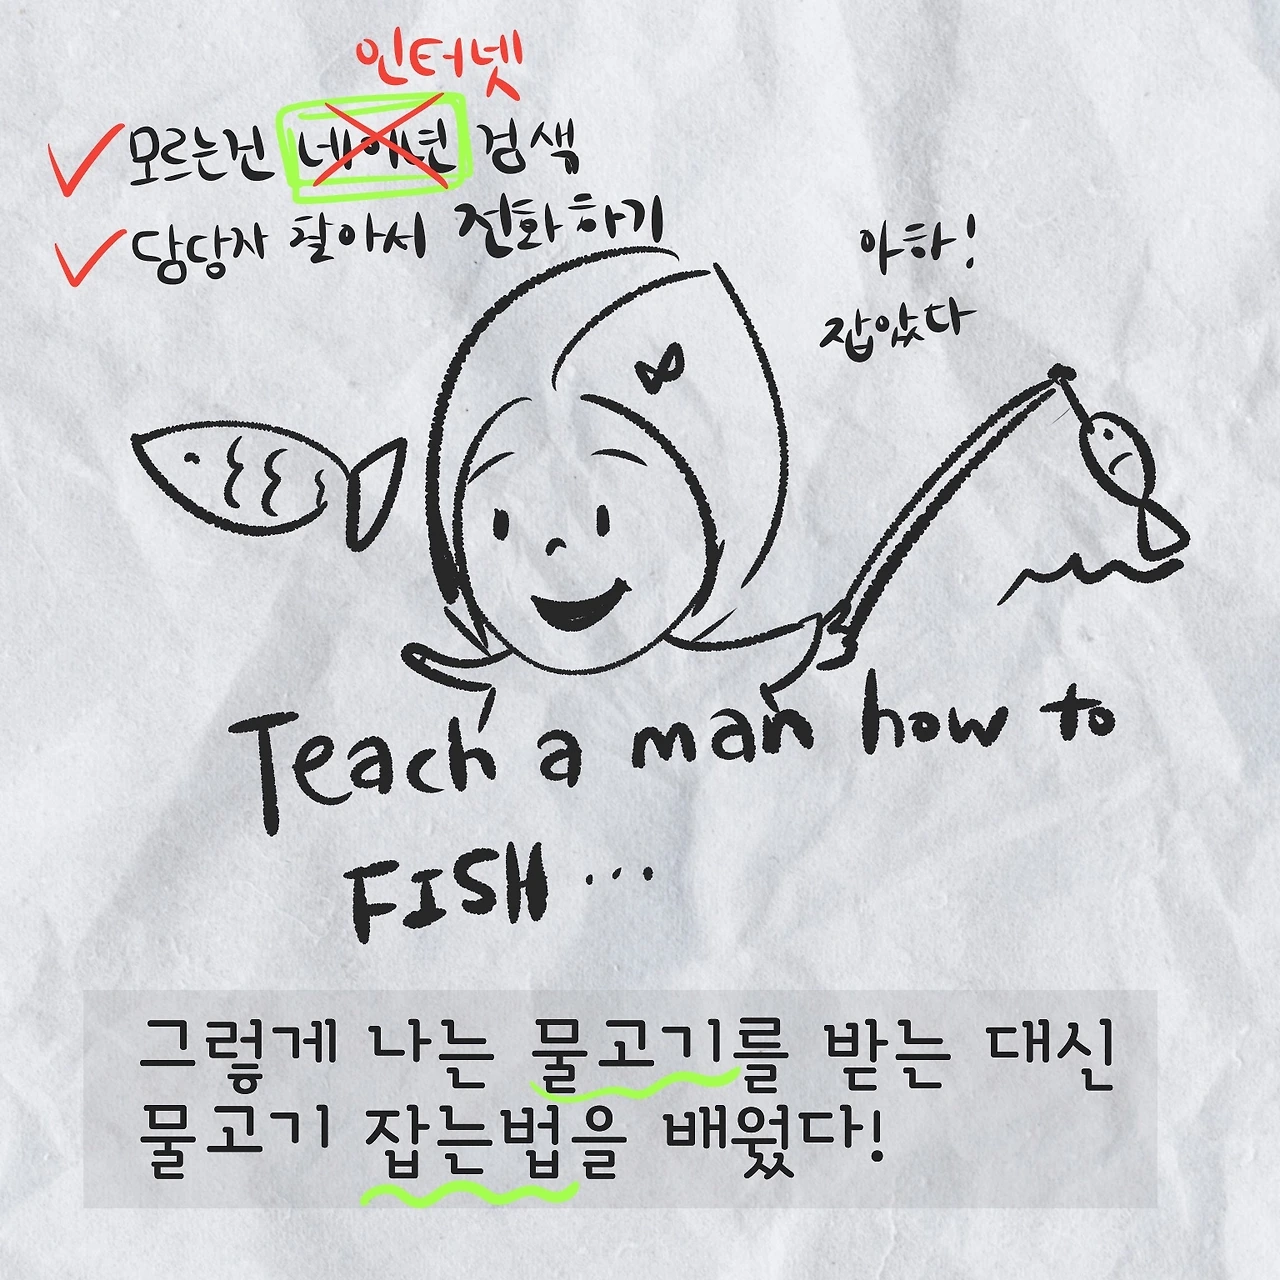 인터넷
모르는건 네이년 검색
담당자 찾아서 전화하기
아하!
잡았다
Teach a man how to
FISH...
그렇게 나는 물고기를 받는 대신
물고기 잡는법을 배웠다!